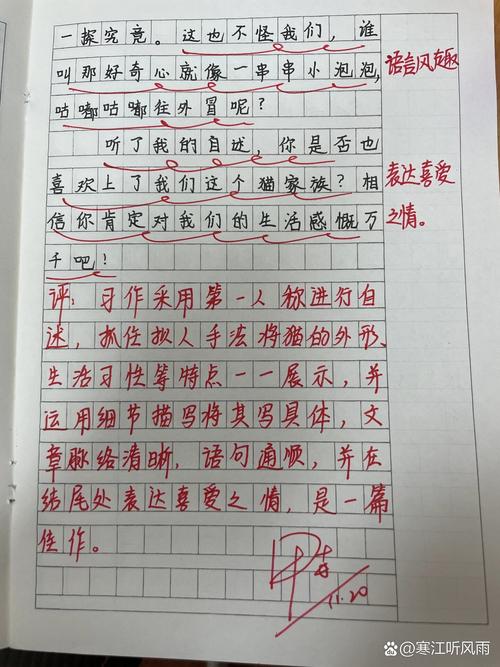 一探究竟。这也不怪我们，谁
叫那好奇心就像一串串小泡泡，
语言风趣
咕嘟咕嘟往外冒呢？
听了我的自述，你是否也
喜欢上了我们这个猫家族？相
表达喜爱
信你肯定对我们的生活感慨万
之情。
千吧！
评：习作采用第一人称进行自
述，抓住拟人手法将猫的外形、
生活习性等特点一一展示，并
运用细节描写将其写具体，文
章脉络清晰，语句通顺，并在
结尾处表达喜爱之情，是一篇
佳作。
11.20
@寒江听风雨